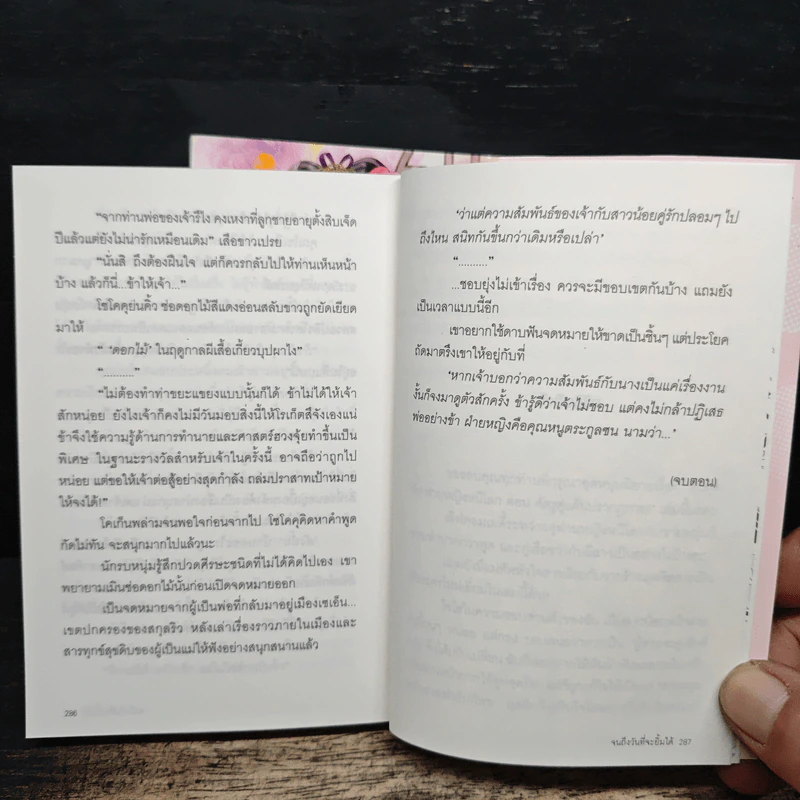 “จากท่านพ่อของเจ้ารึไง คงเหงาที่ลูกชายอายุตั้งสิบเจ็ด
ปีแล้วแต่ยังไม่น่ารักเหมือนเดิม” เสือขาวเปรย
“นั่นสิ ถึงต้องฝืนใจ แต่ก็ควรกลับไปให้ท่านเห็นหน้า
บ้าง แล้วก็นี่...ข้าให้เจ้า...”
โชโคคุย่นคิ้ว ช่อดอกไม้สีแดงอ่อนสลับขาวถูกยัดเยียด
มาให้
“ ‘ดอกไม้’ ในฤดูกาลผีเสื้อเกี้ยวบุปผาไง”
“..........”
“ไม่ต้องทำท่าขยะแขยงแบบนั้นก็ได้ ข้าไม่ได้ให้เจ้า
สักหน่อย ยังไงเจ้าก็คงไม่มีวันมอบสิ่งนี้ให้โรเก็ตสึจังเองแน่
ข้าจึงใช้ความรู้ด้านการทำนายและศาสตร์ฮวงจุ้ยทำขึ้นเป็น
พิเศษ ในฐานะรางวัลสำหรับเจ้าในครั้งนี้ อาจถือว่าถูกไป
หน่อย แต่ขอให้เจ้าต่อสู้อย่างสุดกำลัง ถล่มปราสาทเป้าหมาย
ให้จงได้!”
โคเก็นพล่ามจนพอใจก่อนจากไป โชโคคุคิดหาคำพูด
กัดไม่ทัน จะสนุกมากไปแล้วนะ
นักรบหนุ่มรู้สึกปวดศีรษะชนิดที่ไม่ได้คิดไปเอง เขา
พยายามเมินช่อดอกไม้นั้นก่อนเปิดจดหมายออก
เป็นจดหมายจากผู้เป็นพ่อที่กลับมาอยู่เมืองเซเอ็น...
เขตปกครองของสกุลริว หลังเล่าเรื่องราวภายในเมืองและ
สารทุกข์สุขดิบของผู้เป็นแม่ให้ฟังอย่างสนุกสนานแล้ว
286
‘ว่าแต่ความสัมพันธ์ของเจ้ากับสาวน้อยคู่รักปลอมๆ ไป
ถึงไหน สนิทกันขึ้นกว่าเดิมหรือเปล่า’
“..........”
...ชอบยุ่งไม่เข้าเรื่อง ควรจะมีขอบเขตกันบ้าง แถมยัง
เป็นเวลาแบบนี้อีก
เขาอยากใช้ดาบฟันจดหมายให้ขาดเป็นชิ้นๆ แต่ประโยค
ถัดมาตรึงเขาให้อยู่กับที่
‘หากเจ้าบอกว่าความสัมพันธ์กับนางเป็นแค่เรื่องงาน
งั้นก็จงมาดูตัวสักครั้ง ข้ารู้ดีว่าเจ้าไม่ชอบ แต่คงไม่กล้าปฏิเสธ
พ่ออย่างข้า ฝ่ายหญิงคือคุณหนูตระกูลซน นามว่า...’
(จบตอน)
จนถึงวันที่จะยิ้มได้ 287